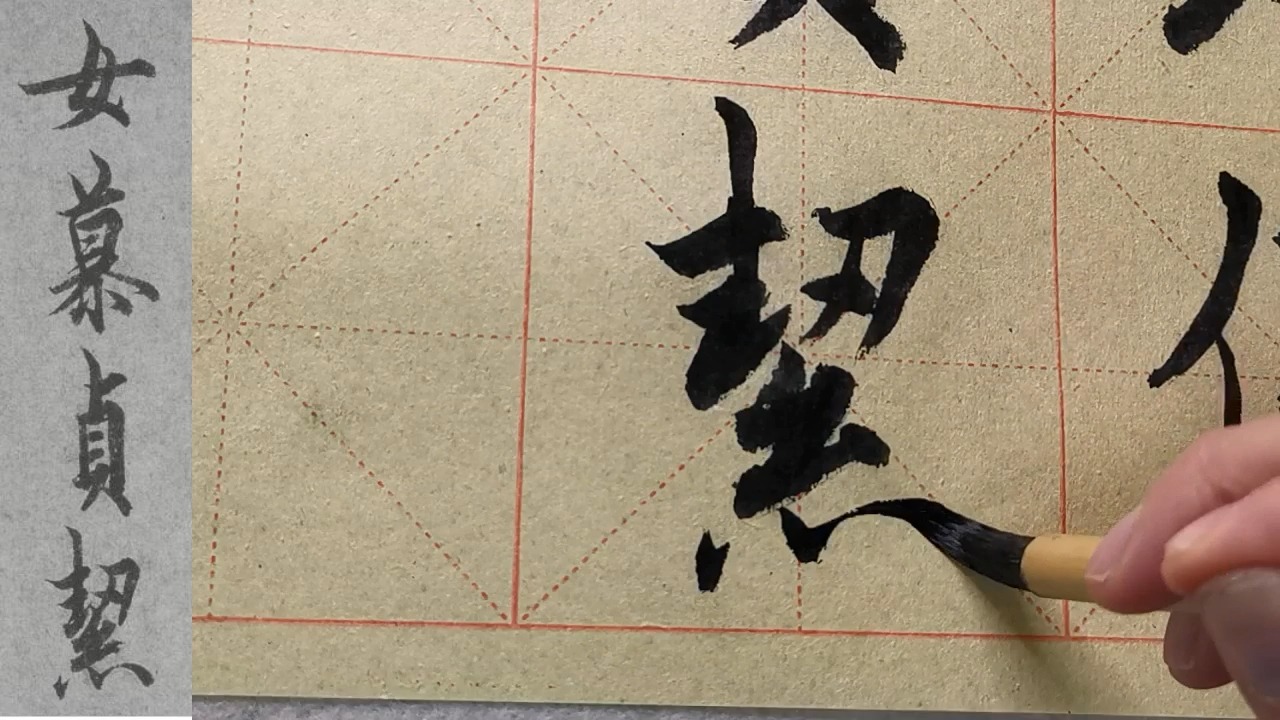 女慕貞絜
絜